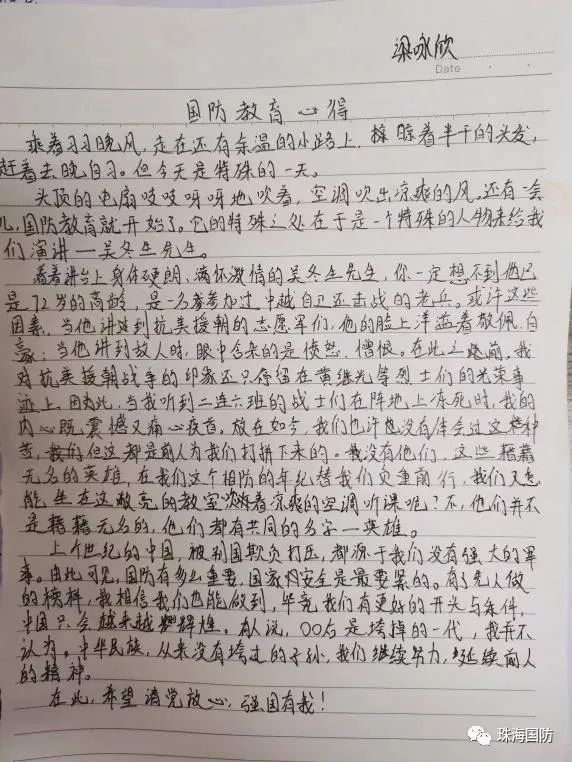 梁咏欣
Date
国防教育心得
乘着习习晚风，走在还有余温的小路上，撩晾着半干的头发，
赶着去晚自习。但今天是特殊的一天。
头顶的电扇吱吱呀呀地吹着，空调吹出凉爽的风。还有一会
儿，国防教育就开始了。它的特殊之处在于是一个特殊的人物来给我
们演讲—吴冬生先生。
看着讲台上身体硬朗、满怀激情的吴冬生先生，你一定想不到他已
是72岁的高龄，是一名参加过中越自卫还击战的老兵。或许这些
因素，当他讲述到抗美援朝的志愿军们，他的脸上洋溢着敬佩、自
豪；当他讲到敌人时，眼中含来的是愤怒、憎恨。在此之前，我
对抗美援朝战争的印象还只停留在黄继光等烈士们的光荣事
迹上。因此，当我听到二连六班的战士们在阵地上冻死时，我的
内心既震撼又痛心疾首，放在如今，我们也许也没有体会过这种
苦，但这都是前人为我们打拼下来的。我没有他们，这些藉藉
无名的英雄，在我们这个相防的年纪替我们负重前行，我们又怎
能坐在这敞亮的教室吹着凉爽的空调听课呢？不，他们并不
是藉藉无名的，他们都有共同的名字—英雄。
上个世纪的中国，被别国欺负打压，都源于我们没有强大的军
事。由此可见，国防有多么重要，国家的安全是最要紧的。有了先人做
的榜样，我相信我们也能做到，毕竟我们有更好的开头与条件，
中国只会越来越辉煌。有人说，00后是垮掉的一代，我并不
认为。中华民族，从来没有垮过的子孙，我们继续努力，延续前人
的精神。
在此，希望请党放心，强国有我！
珠海国防